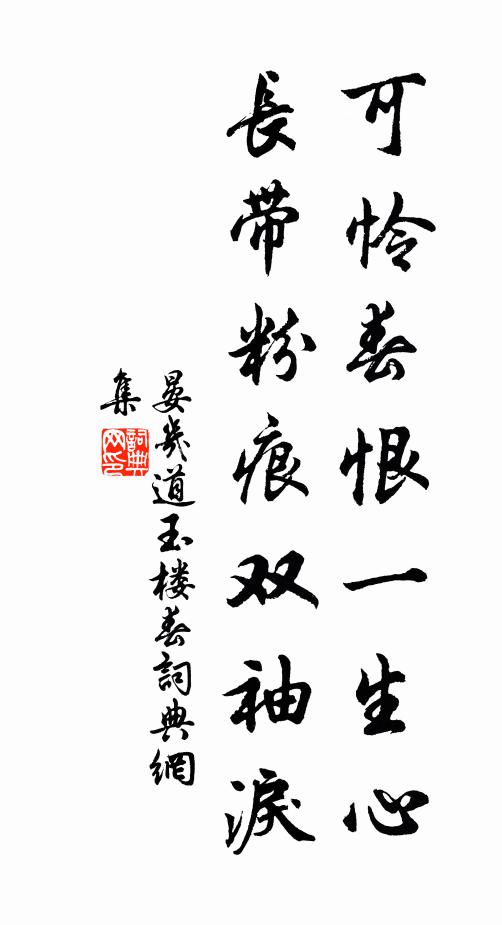 可怜春恨一生心
長带粉痕双袖淚
晏幾道玉楼春詞典網
集
詞典网印